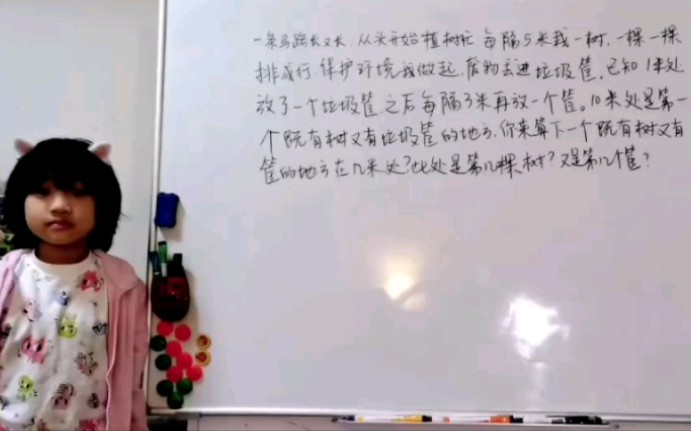 一条马路长又长,从头开始植树忙,每隔5米栽一树,一棵一棵
排成行,保护环境我做起,废物丢进垃圾筐,已知1米处
放了一个垃圾筐,之后每隔3米再放一个筐。10米处是第一
个既有树又有垃圾筐的地方,你来算下一个既有树又有
筐的地方在几米处?此处是第几棵树?又是第几个筐?